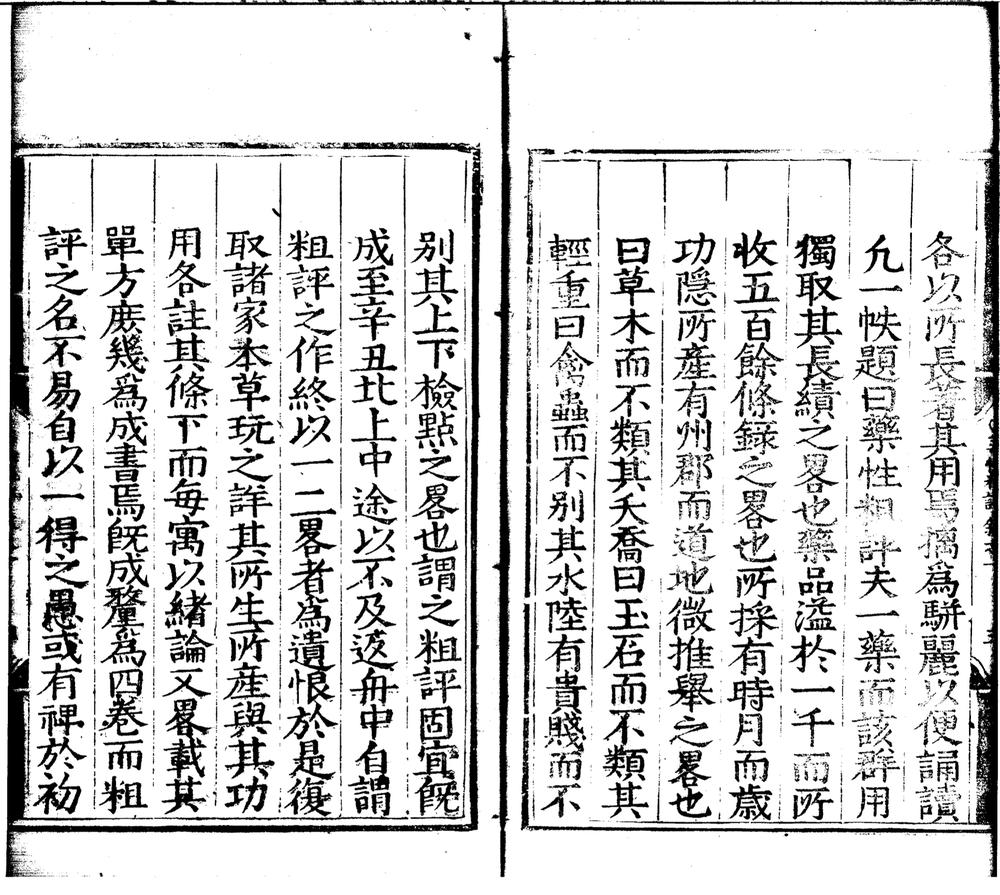 各以所長著其用焉摛為駢麗以便誦讀
凢一帙題曰藥性粗評夫一藥而該群用
獨取其長績之畧也藥品溢於一千而所
收五百餘條錄之畧也所採有時月而歲
功隱所產有州郡而道地微推舉之畧也
曰草木而不類其夭喬曰玉石而不類其
輕重曰禽蟲而不別其水陸有貴賤而不
別其上下檢點之畧也謂之粗評固宜旣
成至辛丑北上中途以不及返舟中自謂
粗評之作終以一二畧者為遺恨於是復
取諸家本草玩之詳其所生所產與其功
用各註其條下而每寓以緒論又畧載其
單方庶幾為成書焉旣成釐為四卷而粗
評之名不易自以一得之愚或有裨於初